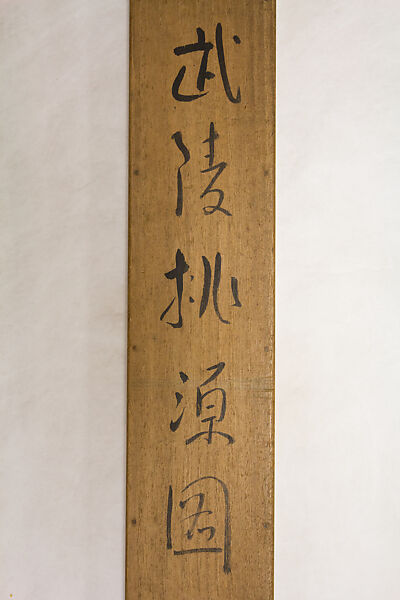 武陵桃源图